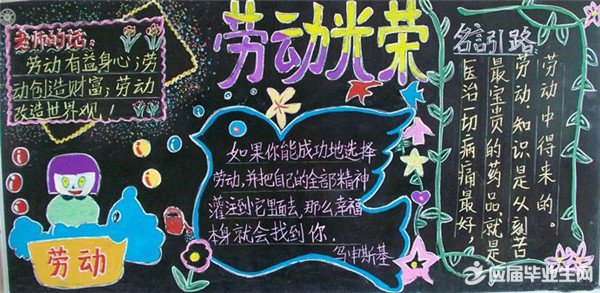 老师的话:
劳动有益身心;劳
动创造财富;劳动
改造世界观!
劳动光荣
如果你能成功地选择
劳动,并把自己的全部精神
灌注到它里面去,那么幸福
本身就会找到你.
乌申斯基
名言引路
医治一切病痛最好,
最宝贝的药品,就是
劳动,知识是从刻苦
劳动中得来的。
劳动
应届毕业生网